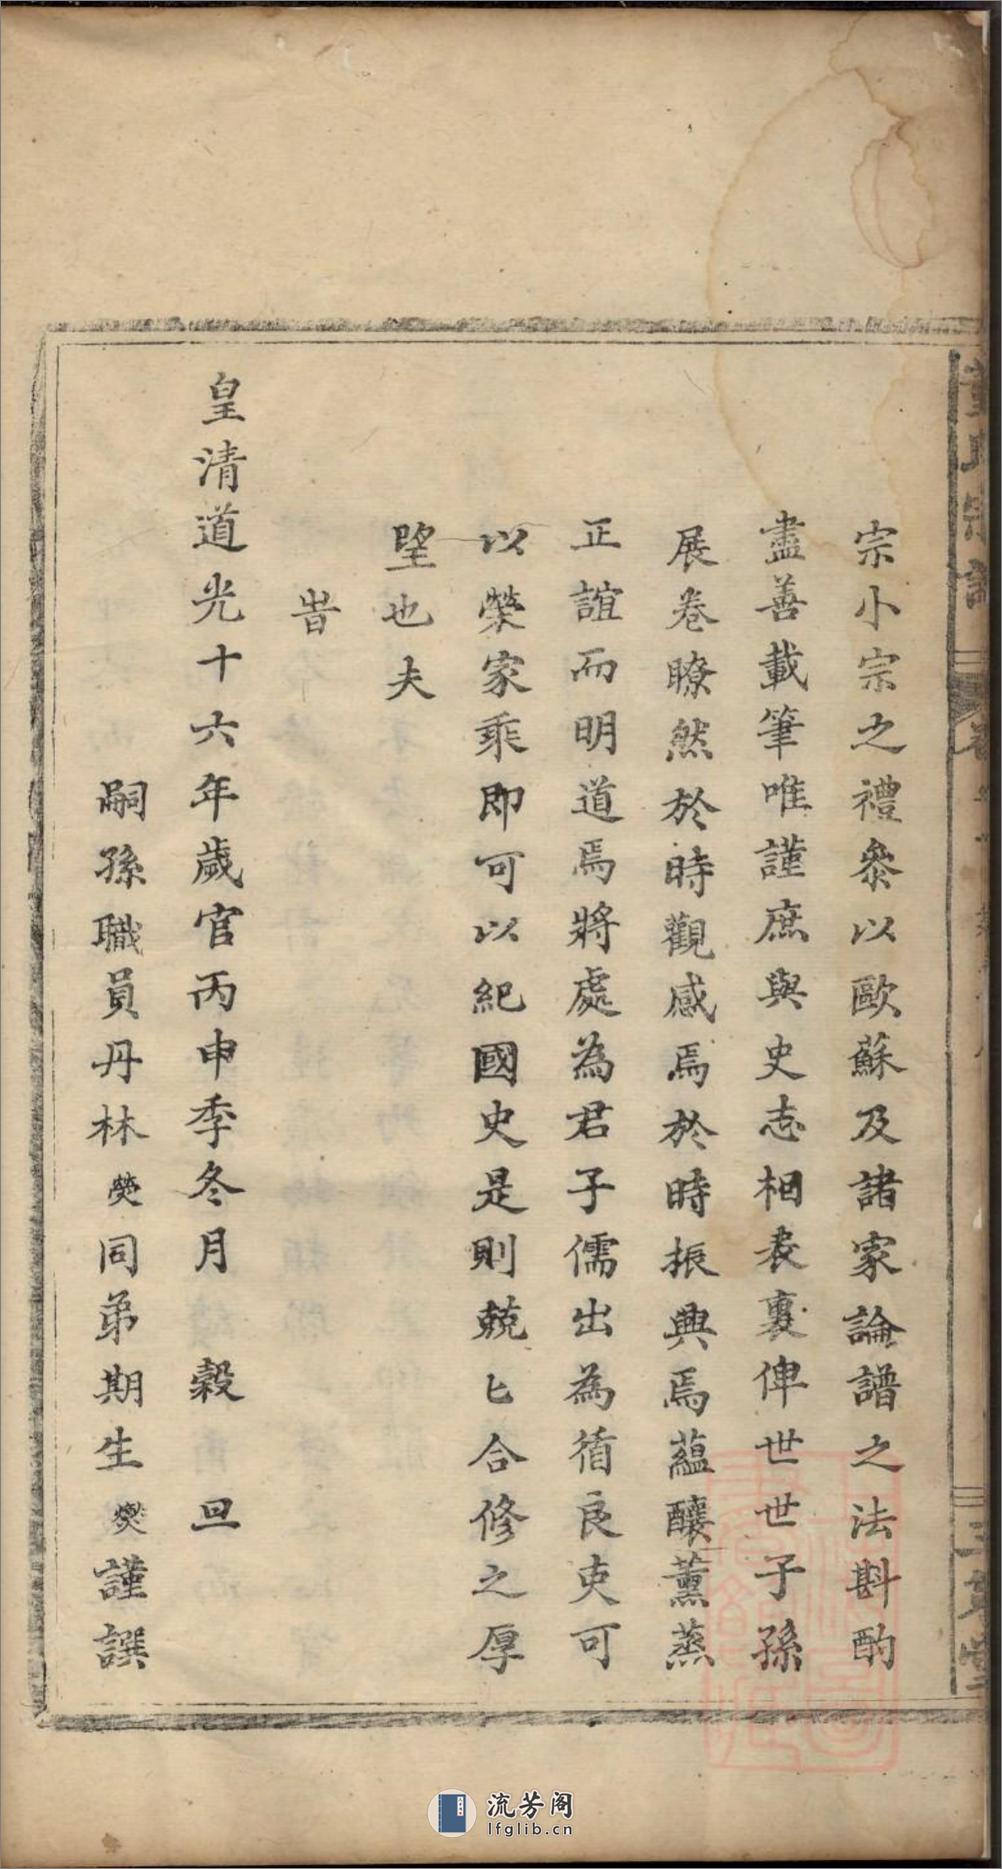 宗小宗之禮叅以歐蘇及諸家論譜之法斟酌
盡善載筆唯謹庶與史志相表裏俾世世子孫
展卷瞭然於時觀感焉於時振興焉蘊釀薰蒸
正誼而明道焉將處為君子儒出為循良吏可
以榮家乘即可以紀國史是則兢匕合修之厚
望也夫
旹
皇清道光十六年歲官丙申季冬月 榖 旦
嗣孫職員丹林熒同弟期生爕謹譔
流芳阁
lfglib.cn